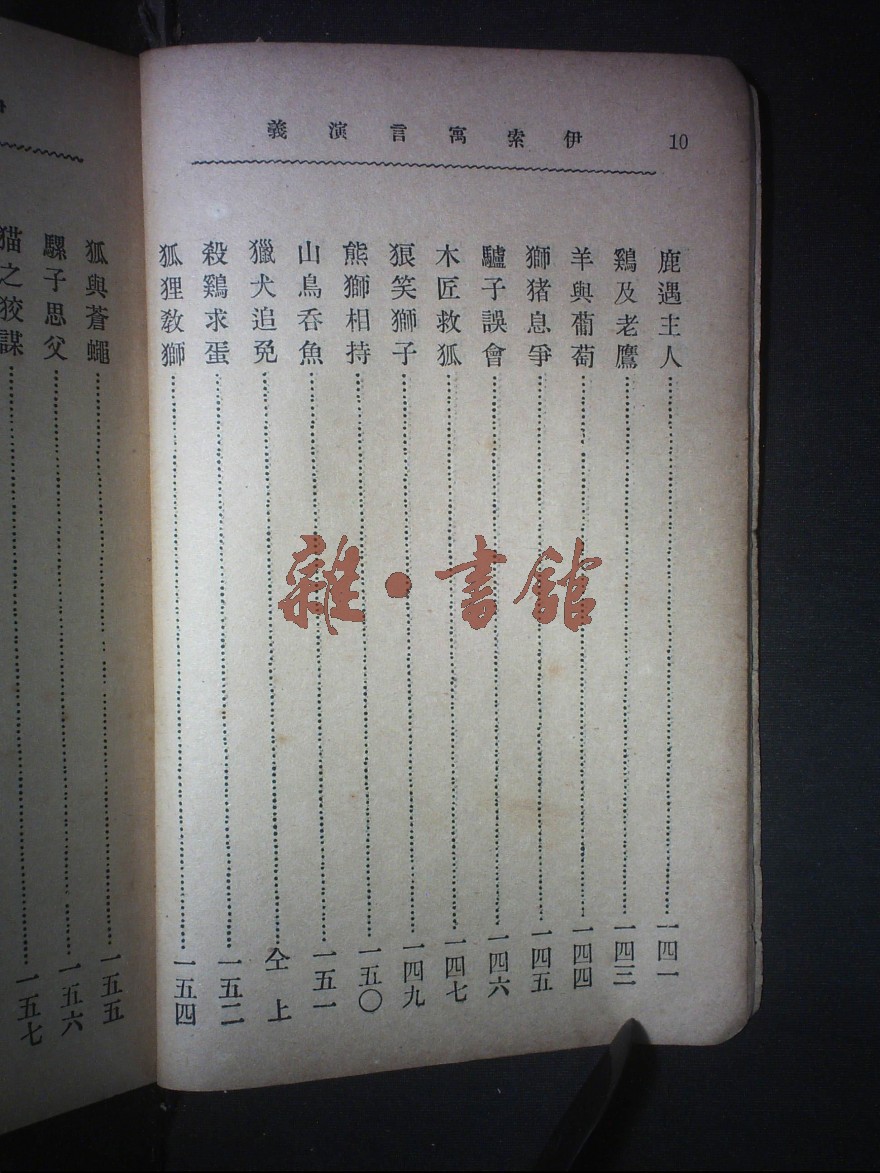 10
伊索寓言演義
鹿遇主人 一四一
鷄及老鷹 一四三
羊與葡萄 一四四
獅猪息爭 一四五
驢子誤會 一四六
木匠救狐 一四七
狼笑獅子 一四九
熊獅相持 一五〇
山鳥呑魚 一五一
獵犬追兔 仝上
殺鷄求蛋 一五二
狐狸敎獅 一五四
狐與蒼蠅 一五五
騾子思父 一五六
猫之狡謀 一五七
雜·書館